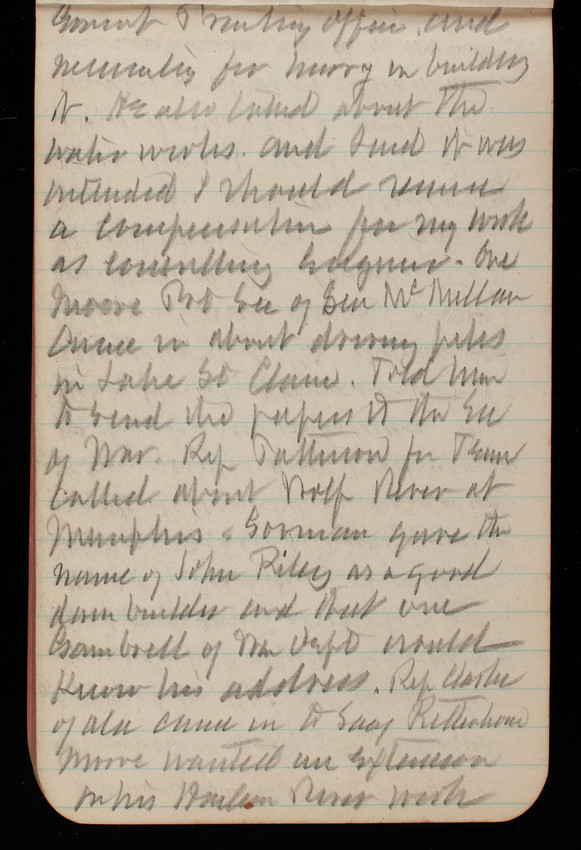 Govmt Printing Office, and
necessity for hurry in building
it. He also talked about the
water works. and said it was
intended I should receive
a compensation for my work
as consulting Engineer. One
Moore Pvt Sec of Sen McMillan
Came in about driving piles
in Lake St Claire. Told him
to send the papers to the Sec
of War. Rep Patterson for Tenn
called about Wolf River at
Memphis. Gorman gave the
name of John Riley as a good
dam builder and that one
Gambrell of War Dept would
Know his address. Rep Clarke
of ala came in to say Rittenhouse
Moore wanted an Extension
on his Harlem River work